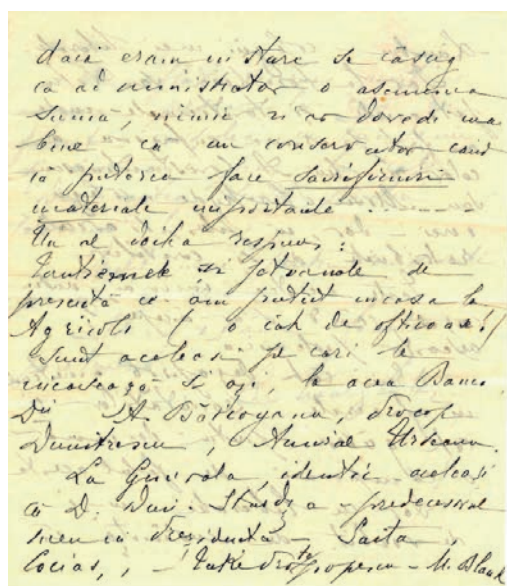 daca eram in stare se câștig
ca administrator o asemenea
suma, nimic n'ar dovedi mai
bine ca un conservator când
sa puteam face sacrificiuri
materiale importante
Un al doilea respuns:
Tantiemele si jetoanele de
presența ce am putut incasa la
Agricola
Sunt aceleasi pe cari le
incasează si azi, la acea Banca
Dii A. Bărcoyanu, Procop
Dumitrescu, Aurvial Urseanu.
La Generala, identic aceleasi
ca D. Dim. Sturdza predecesorul
meu ca
Cocias, M. Blank